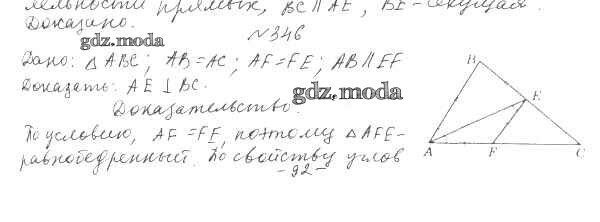 лельности прямых, BC ∥ AE, BE - секущая.
Доказано.
gdz.moda
№346
Дано: △ABC; AB=AC; AF=FE; AB∥EF
Доказать: AE ⊥ BC.
gdz.moda
Доказательство.
По условию, AF=FE, поэтому △AFE-
равнобедренный. По свойству углов
-92-
B
E
A
F
C